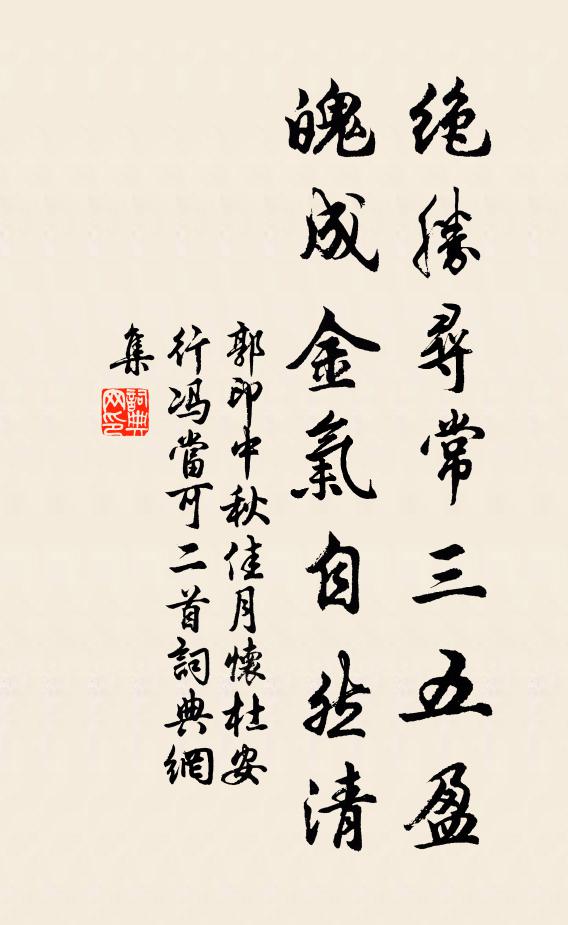 絶勝尋常三五盈
魄成金氣自然清
郭印中秋佳月懷杜安
行冯當可二首詞典網
集
詞典网印